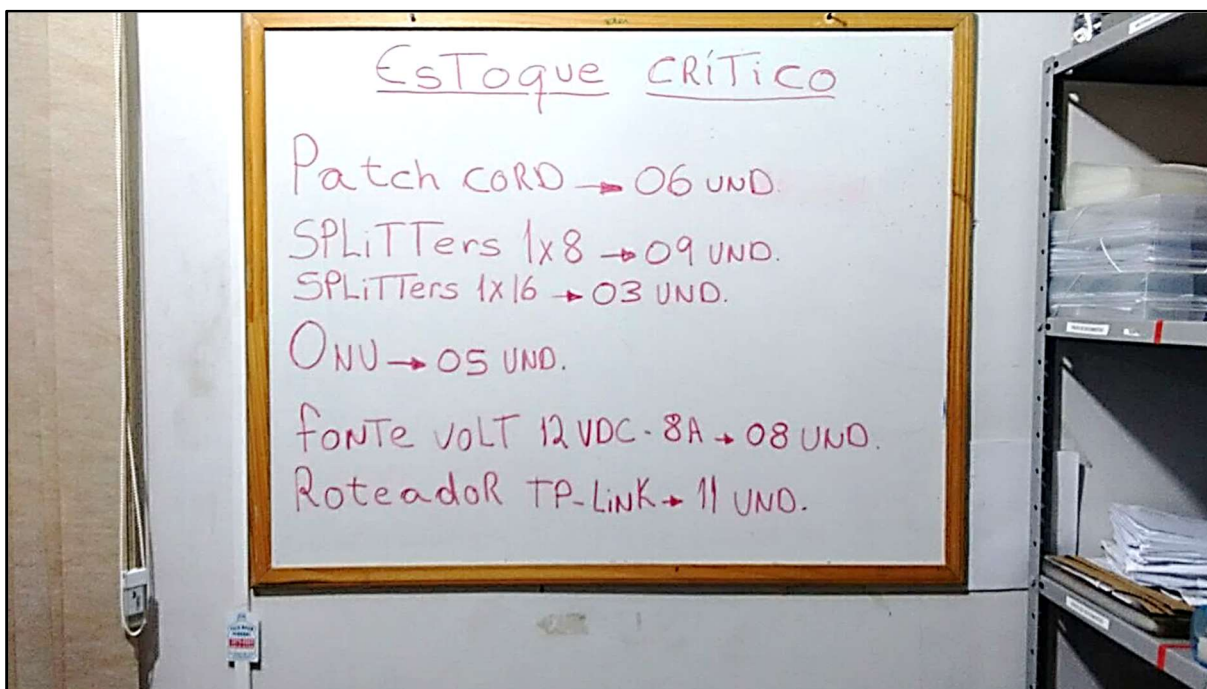 EsToque CRíTico
Patch CORD → 06 UND.
SPLiTTers 1x8 → 09 UND.
SPLiTTers 1x16 → 03 UND.
ONU → 05 UND.
foNTe VOLT 12 VDC - 8A → 08 UND.
RoteadoR TP-LiNK → 11 UND.